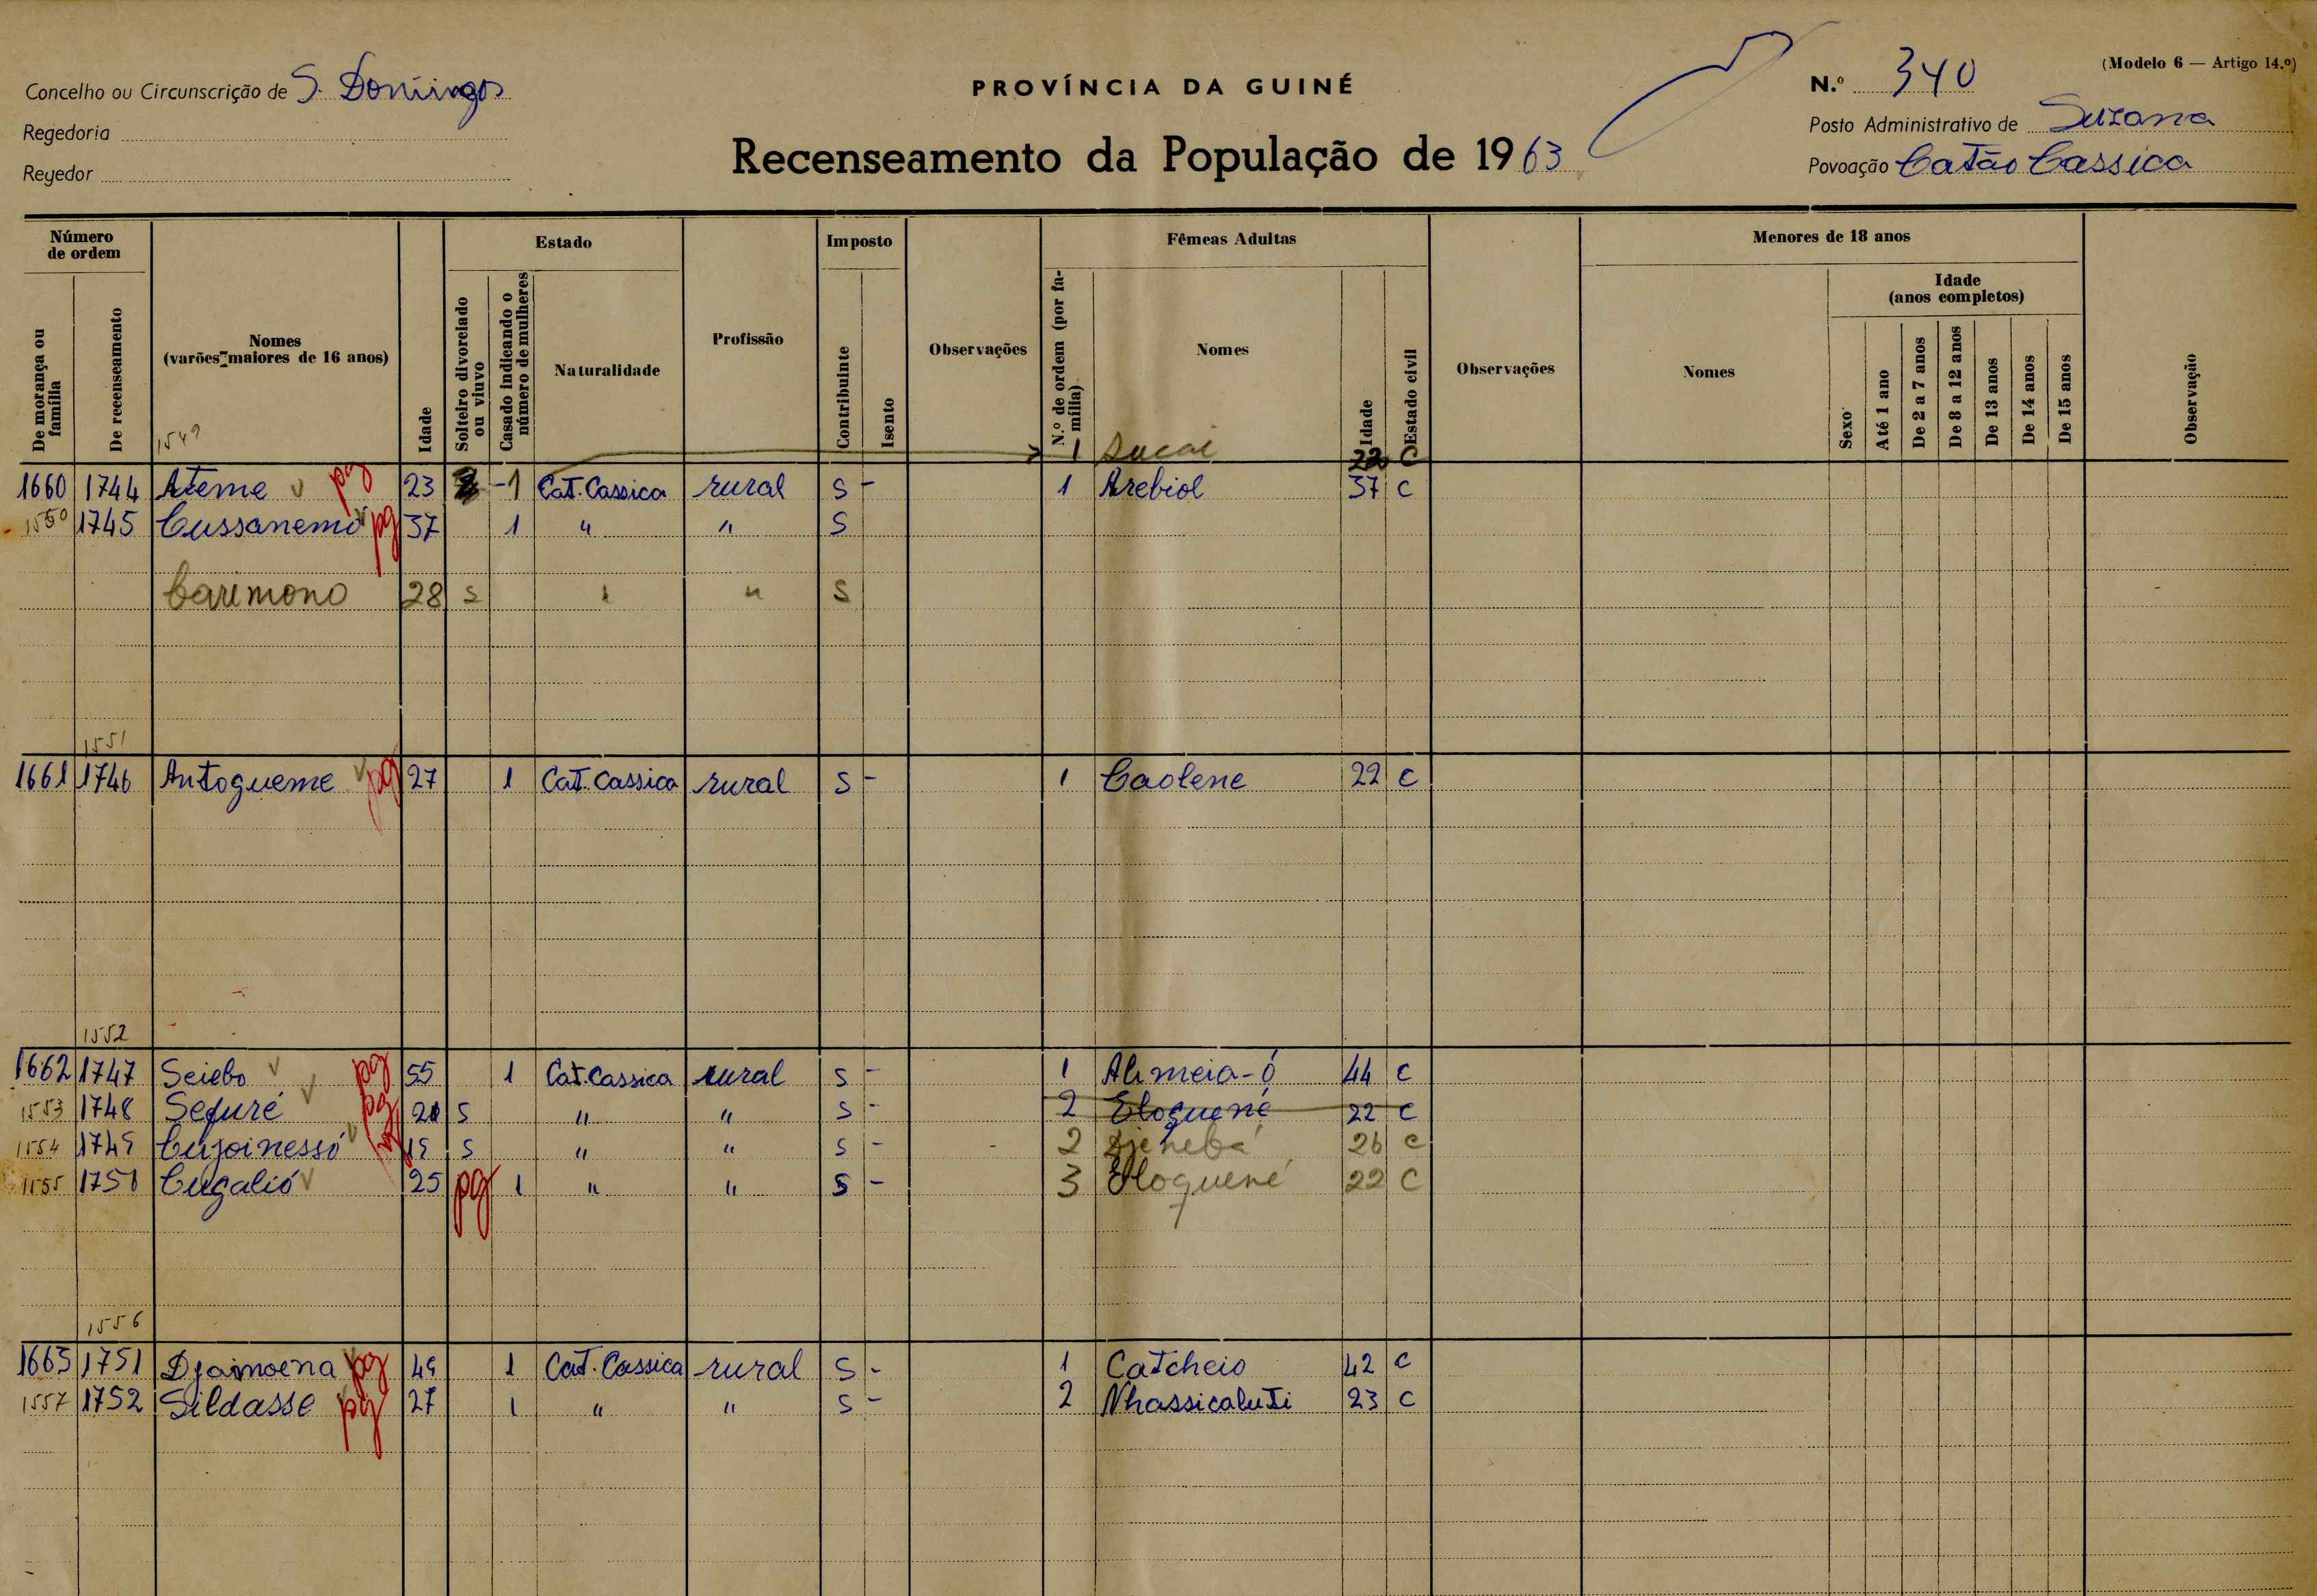 (Modelo 6 — Artigo 14.º)
Concelho ou Circunscrição de S. Domingos
PROVÍNCIA DA GUINÉ
N.º 340
Regedoria
Posto Administrativo de Suzana
Regedor
Recenseamento da População de 1963
Povoação Catão Cassica
Número de ordem
Estado
Imposto
Fêmeas Adultas
Menores de 18 anos
Idade (anos completos)
De morança ou família
De recenseamento
Nomes (varões maiores de 16 anos)
Idade
Solteiro divorciado ou viuvo
Casado indicando o número de mulheres
Naturalidade
Profissão
Contribuinte
Isento
Observações
N.º de ordem (por família)
Nomes
Idade
Estado civil
Observações
Nomes
Sexo
Até 1 ano
De 2 a 7 anos
De 8 a 12 anos
De 13 anos
De 14 anos
De 15 anos
Observação
1549
1 Sucai 22 C
1660 1744 Ateme v pg 23 - 1 Cat. Cassica rural S - 1 Arebiol 37 C
1550 1745 Cussanemo v pg 37 1 " " S
Carimono 28 S " " S
1551
1661 1746 Antogueme v pg 27 1 Cat. Cassica rural S - 1 Caolene 22 C
1552
1662 1747 Seiebo v pg 55 1 Cat. Cassica rural S - 1 Alimeia-ó 44 C
1553 1748 Sefuré v pg 21 S " " S - 2 Eloguené 22 C
1554 1749 Cujoinessó v pg 19 S " " S - 2 Djenebá 26 C
1555 1750 Cugalió v 25 pg 1 " " S - 3 Eloguené 22 C
1556
1663 1751 Djamoena v pg 49 1 Cat. Cassica rural S - 1 Catcheio 42 C
1557 1752 Sildasse pg 27 1 " " S - 2 Nhassicaluti 23 C